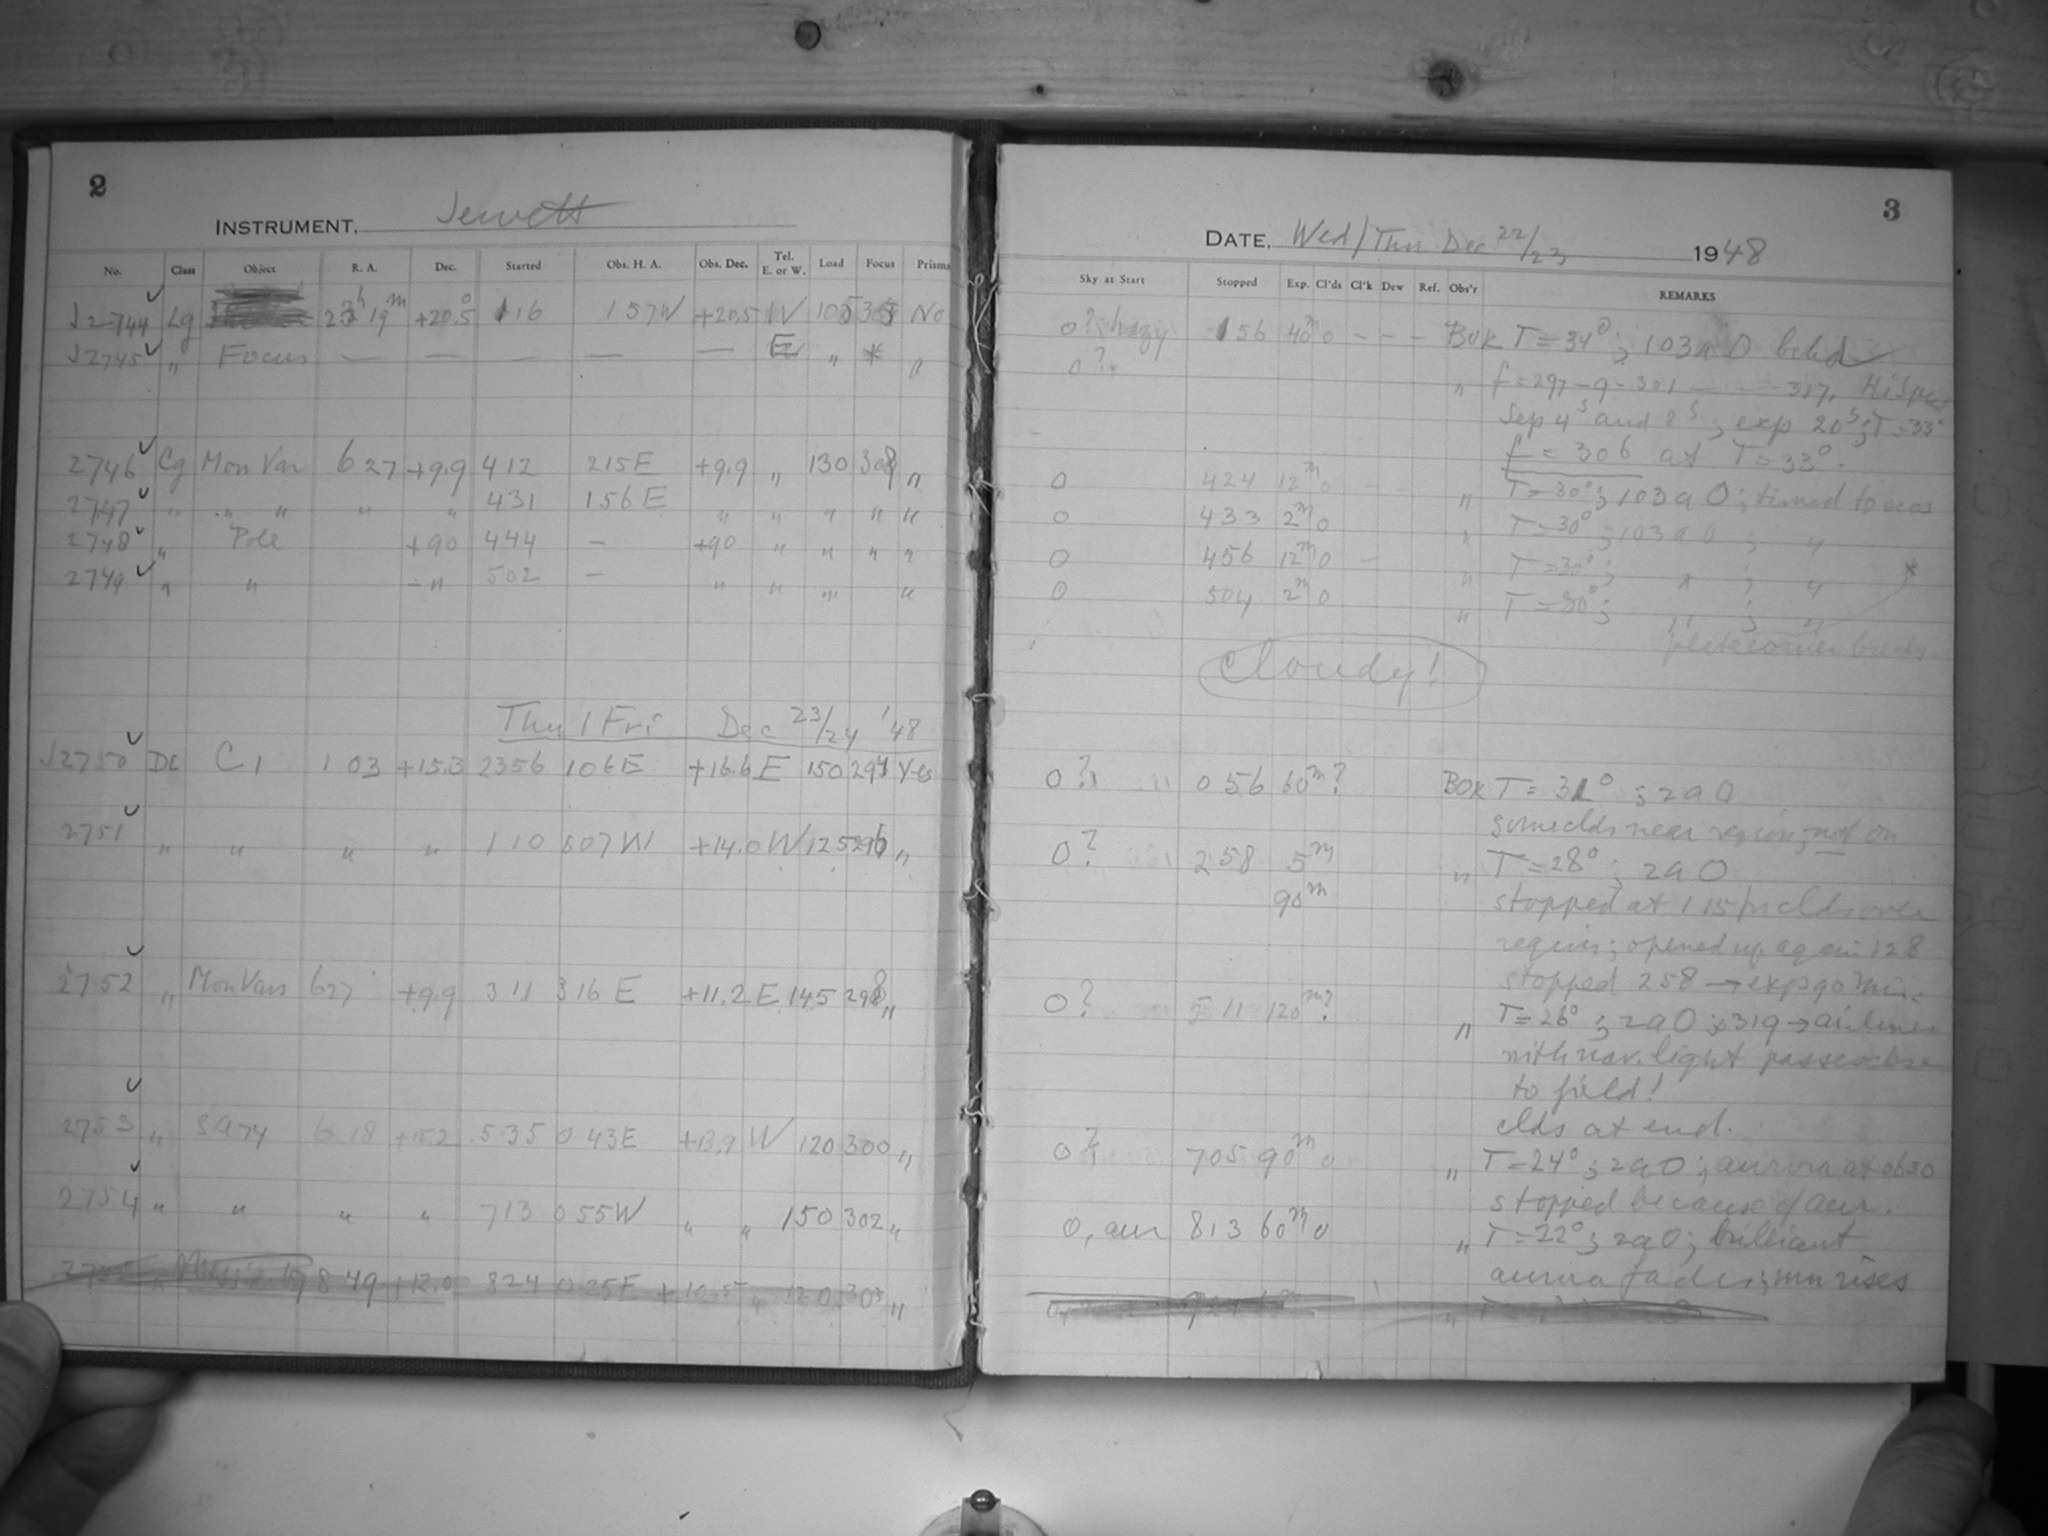 2
INSTRUMENT, Jewett
No. Class Object R. A. Dec. Started Obs. H. A. Obs. Dec. Tel. E. or W. Load Focus Prisms
J2744 Lg 23h 19m +20.5° 116 157W +20.5 W 105 No
J2745 " Focus — — — — — E " * "
2746 Cg Mon Var 6 27 +9.9 412 215E +9.9 " 130 308 "
2747 " " " " " 431 156E " " " " "
2748 " Pole +90 444 — +90 " " " "
2749 " " " 502 — " " " "
Thu / Fri Dec 23/24 '48
J2750 DC C1 1 03 +15.3 2356 106E +16.6 E 150 297 Yes
2751 " " " " 110 007W +14.0 W 125 296 "
2752 " Mon Vars 627 +9.9 311 316 E +11.2 E 145 298 "
2753 " SA74 6 18 +15.2 535 0 43E +13.9 W 120 300 "
2754 " " " " 713 0 55W " " 150 302 "
8 49 +12.0 824 0 25E +10.5 " 120 303 "
3
DATE, Wed/Thu Dec 22/23 1948
Sky at Start Stopped Exp. Cl'ds Cl'k Dew Ref. Obs'r REMARKS
0? hazy 156 40m 0 - - - BOK T = 34°; 103aO
0?* " f = 297-9-301 - - - 317,
Sep 4s and 8s; exp 20s; T=33°
f = 306 at T = 33°.
0 424 12m 0 - - " T = 30°; 103aO; timed to secs
0 433 2m 0 " T = 30°; 103aO; "
0 456 12m 0 - " T = 30°; " ; " *
0 504 2m 0 " T = 30°; " ; "
plate corner breaks
Cloudy!
0? 056 60m? BOK T = 31°; 2aO
some clds near region; not on
0? 258 5m " T = 28°; 2aO
90m stopped at 115 clds over
region; opened up again 128
stopped 258 → exp 90 min.
0? 511 120m? " T = 26°; 2aO; 319 → airliner
with nav. light passes close
to field!
clds at end.
0? 705 90m 0 " T = 24°; 2aO; aurora at 0630
stopped because of aur.
0, aur 813 60m 0 " T = 22°; 2aO; brilliant
aurora fades; sun rises